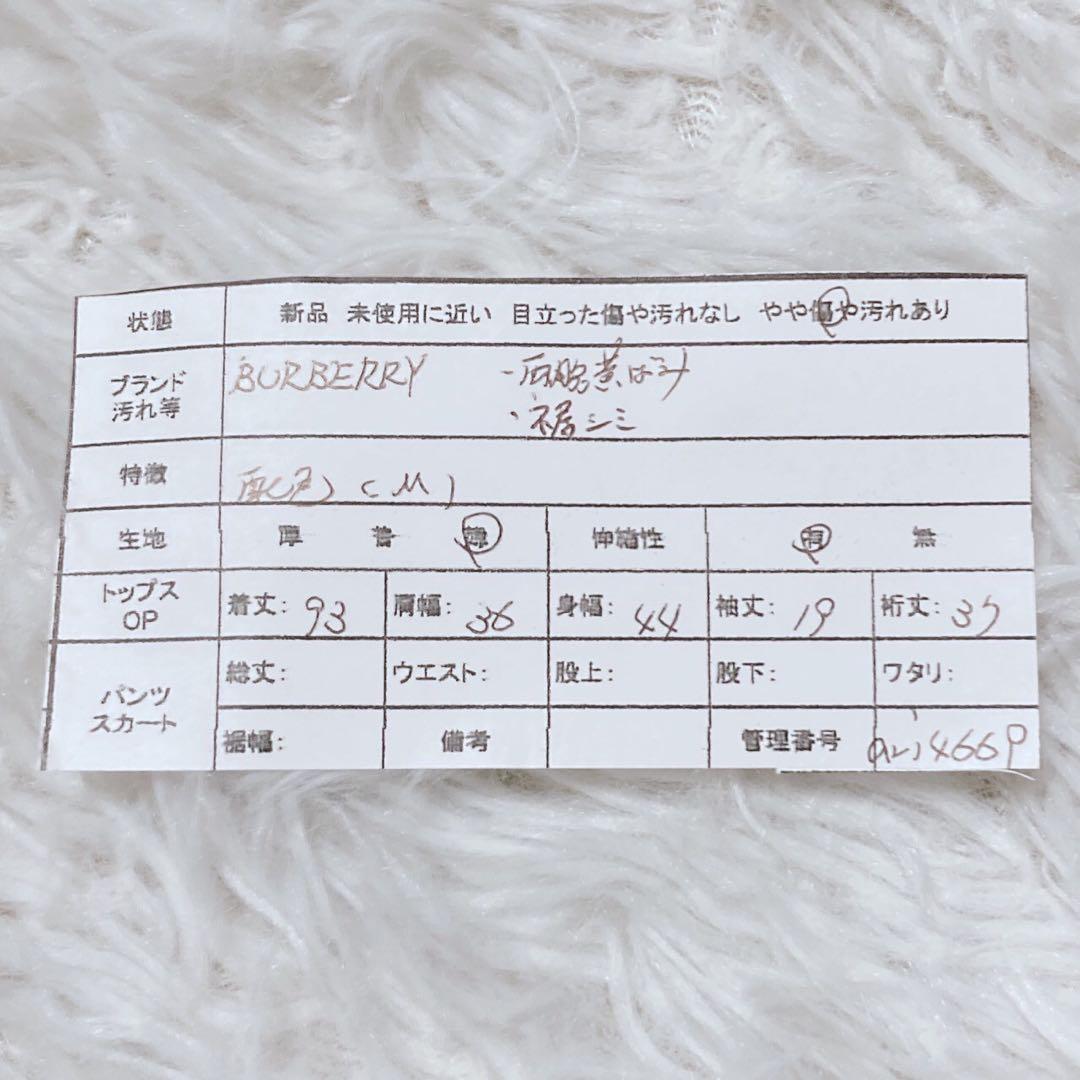 状態 新品 未使用に近い 目立った傷や汚れなし やや傷や汚れあり
ブランド 汚れ等 BURBERRY ・両脇黄ばみ
・裾シミ
特徴 配色 (M)
生地 厚 普 薄 伸縮性 有 無
トップス OP 着丈: 93 肩幅: 36 身幅: 44 袖丈: 19 裄丈: 37
パンツ スカート 総丈: ウエスト: 股上: 股下: ワタリ:
裾幅: 備考 管理番号 4669